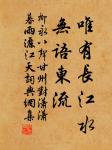 唯有長江水
無語東流
柳永八聲甘州對瀟瀟
暮雨灑江天詞與網集